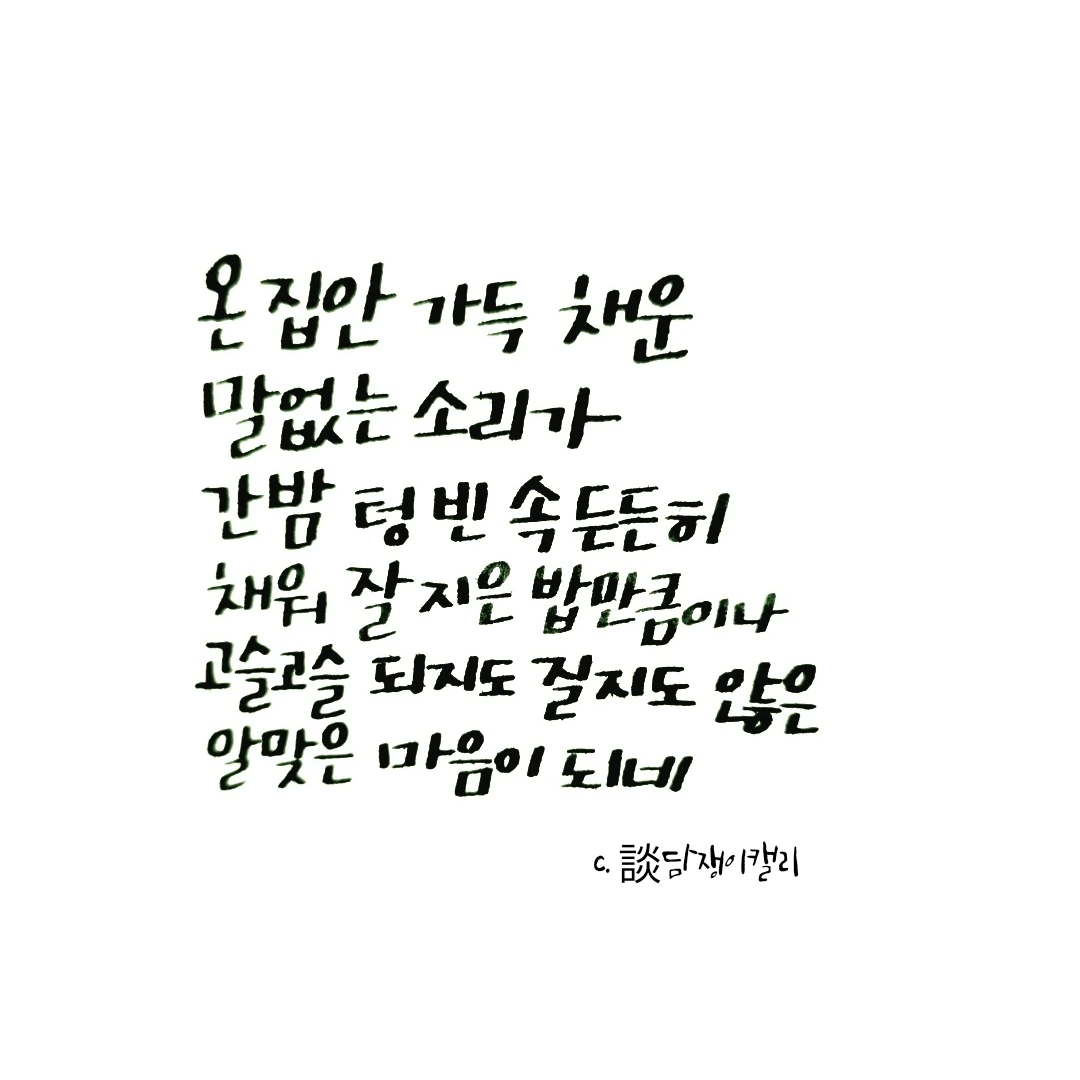 온 집안 가득 채운
말없는 소리가
간밤 텅 빈 속 든든히
채워 잘 지은 밥만큼이나
고슬고슬 되지도 질지도 않은
알맞은 마음이 되네
c. 談담쟁이캘리